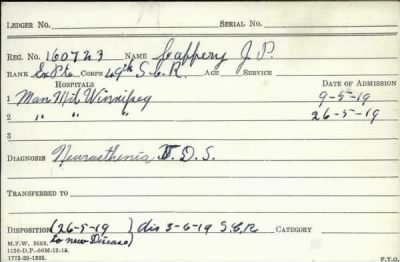 LEDGER NO. SERIAL NO.
REG. NO. 160723 NAME Caffery J. P.
RANK Ex Pte CORPS 49th S.C.R. AGE SERVICE
HOSPITALS DATE OF ADMISSION
1 Man Mil Winnipeg 9-5-19
2 " " " 26-5-19
3
DIAGNOSIS Neurasthenia V.D.S.
TRANSFERRED TO
DISPOSITION (26-5-19 to new Disease) } dis 3-6-19 S.C.R CATEGORY
M.F.W. 2553.
1772-39-1322. P.T.O.